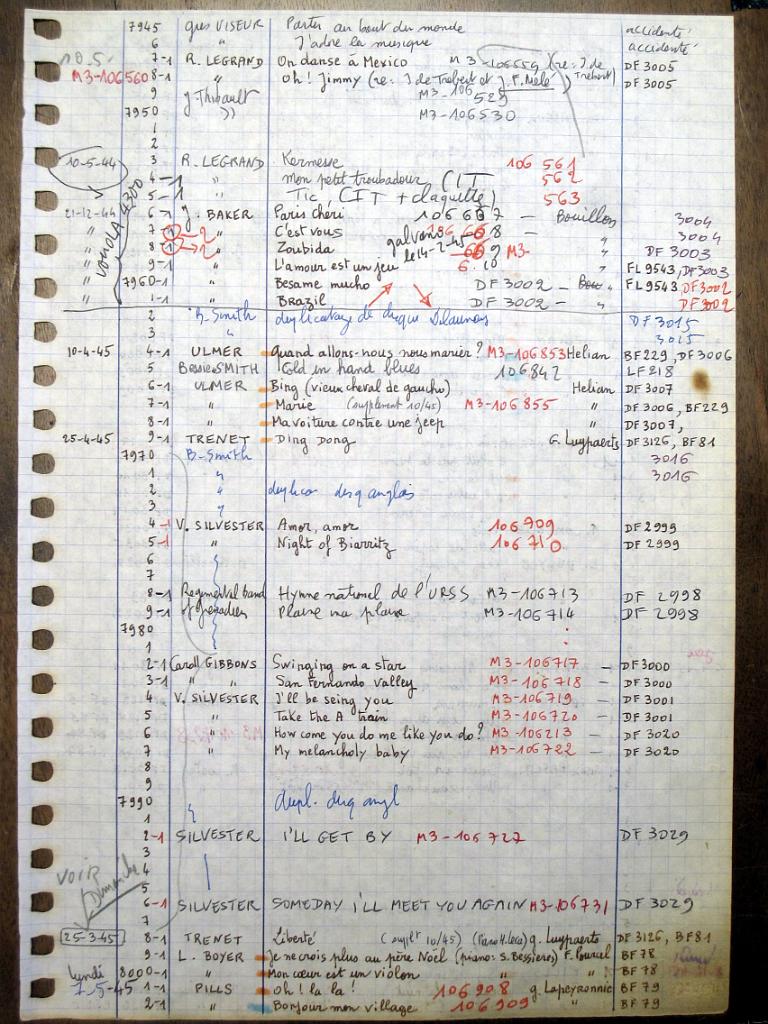 7945 Gus VISEUR Partir au bout du monde accidenté
6 " J'adore la musique accidenté
10.5. 7-1 R. LEGRAND On danse à Mexico M3-106559 (re: J. de Trébert) DF 3005
M3-106560 8-1 " Oh! Jimmy (re: J de Trébert et J.F. Melé) DF 3005
9 J. Thibault M3-106529
7950 )) M3-106530
1
2
10-5-44 3 R. LEGRAND Kermesse 106 561
4-1 " mon petit troubadour (CIT 562
5-1 " Tic (CIT + claquette) 563
VOHOLA 4300
21-12-44 6-1 J. BAKER Paris chéri 106 667 — Bouillon 3004
" 7-1 2 " C'est vous 106 668 — " 3004
" 8-1 2 " Zoubida galvano le 14-2-45 669 M3- " DF 3003
" 9-1 " L'amour est un jeu 6.10 " FL9543, DF3003
" 7960-1 " Besame mucho DF 3002 — Bou " FL9543, DF3002
" 1-1 " Brazil DF 3002 — " DF 3002
2 B. Smith duplicatage de disque Delaunay DF 3015
3 " 3015
10-4-45 4-1 ULMER Quand allons-nous nous marier? M3-106853 Hélian BF229, DF3006
5 Bessie SMITH Cold in hand blues 106842 LF218
6-1 ULMER Bing (vieux cheval de gaucho) Hélian DF 3007
7-1 " Marie (supplément 10/45) M3-106855 " DF 3006, BF229
8-1 " Ma voiture contre une jeep " DF3007,
25-4-45 9-1 TRENET Ding Dong G. Luypaerts DF 3126, BF81
7970 B-Smith 3016
1 " 3016
2 " duplica disq anglais
3 "
4-1 V. SILVESTER Amor, amor 106709 DF 2999
5-1 " Night of Biarritz 106710 DF 2999
6
7
8-1 Regimental band Hymne national de l'URSS M3-106713 DF 2998
9-1 of grenadiers Plaine ma plaine M3-106714 DF 2998
7980
1
2-1 Caroll GIBBONS Swinging on a star M3-106717 — DF 3000
3-1 " " San Fernando Valley M3-106718 — DF 3000
4 V. SILVESTER I'll be seing you M3-106719 — DF 3001
5 " Take the A train M3-106720 — DF 3001
6 " How come you do me like you do? M3-106213 — DF 3020
7 " My melancholy baby M3-106722 — DF 3020
8
9
7990 dupl. disq angl
1
2-1 SILVESTER I'LL GET BY M3-106727 DF 3029
3
4
5
voir Dimanche
6-1 SILVESTER SOMEDAY I'LL MEET YOU AGAIN M3-106731 DF 3029
7
25-3-45 8-1 TRENET Liberté (suppl 10/45) G. Luypaerts DF 3126, BF81
9-1 L. BOYER Je ne crois plus au père Noël (piano: S. Bessières) BF 78
lundi 8000-1 " Mon cœur est un violon " " BF 78
7-5-45 1-1 PILLS Oh! la la! 106908 G. Lapeyronnie BF 79
2-1 " Bonjour mon village 106909 " BF 79